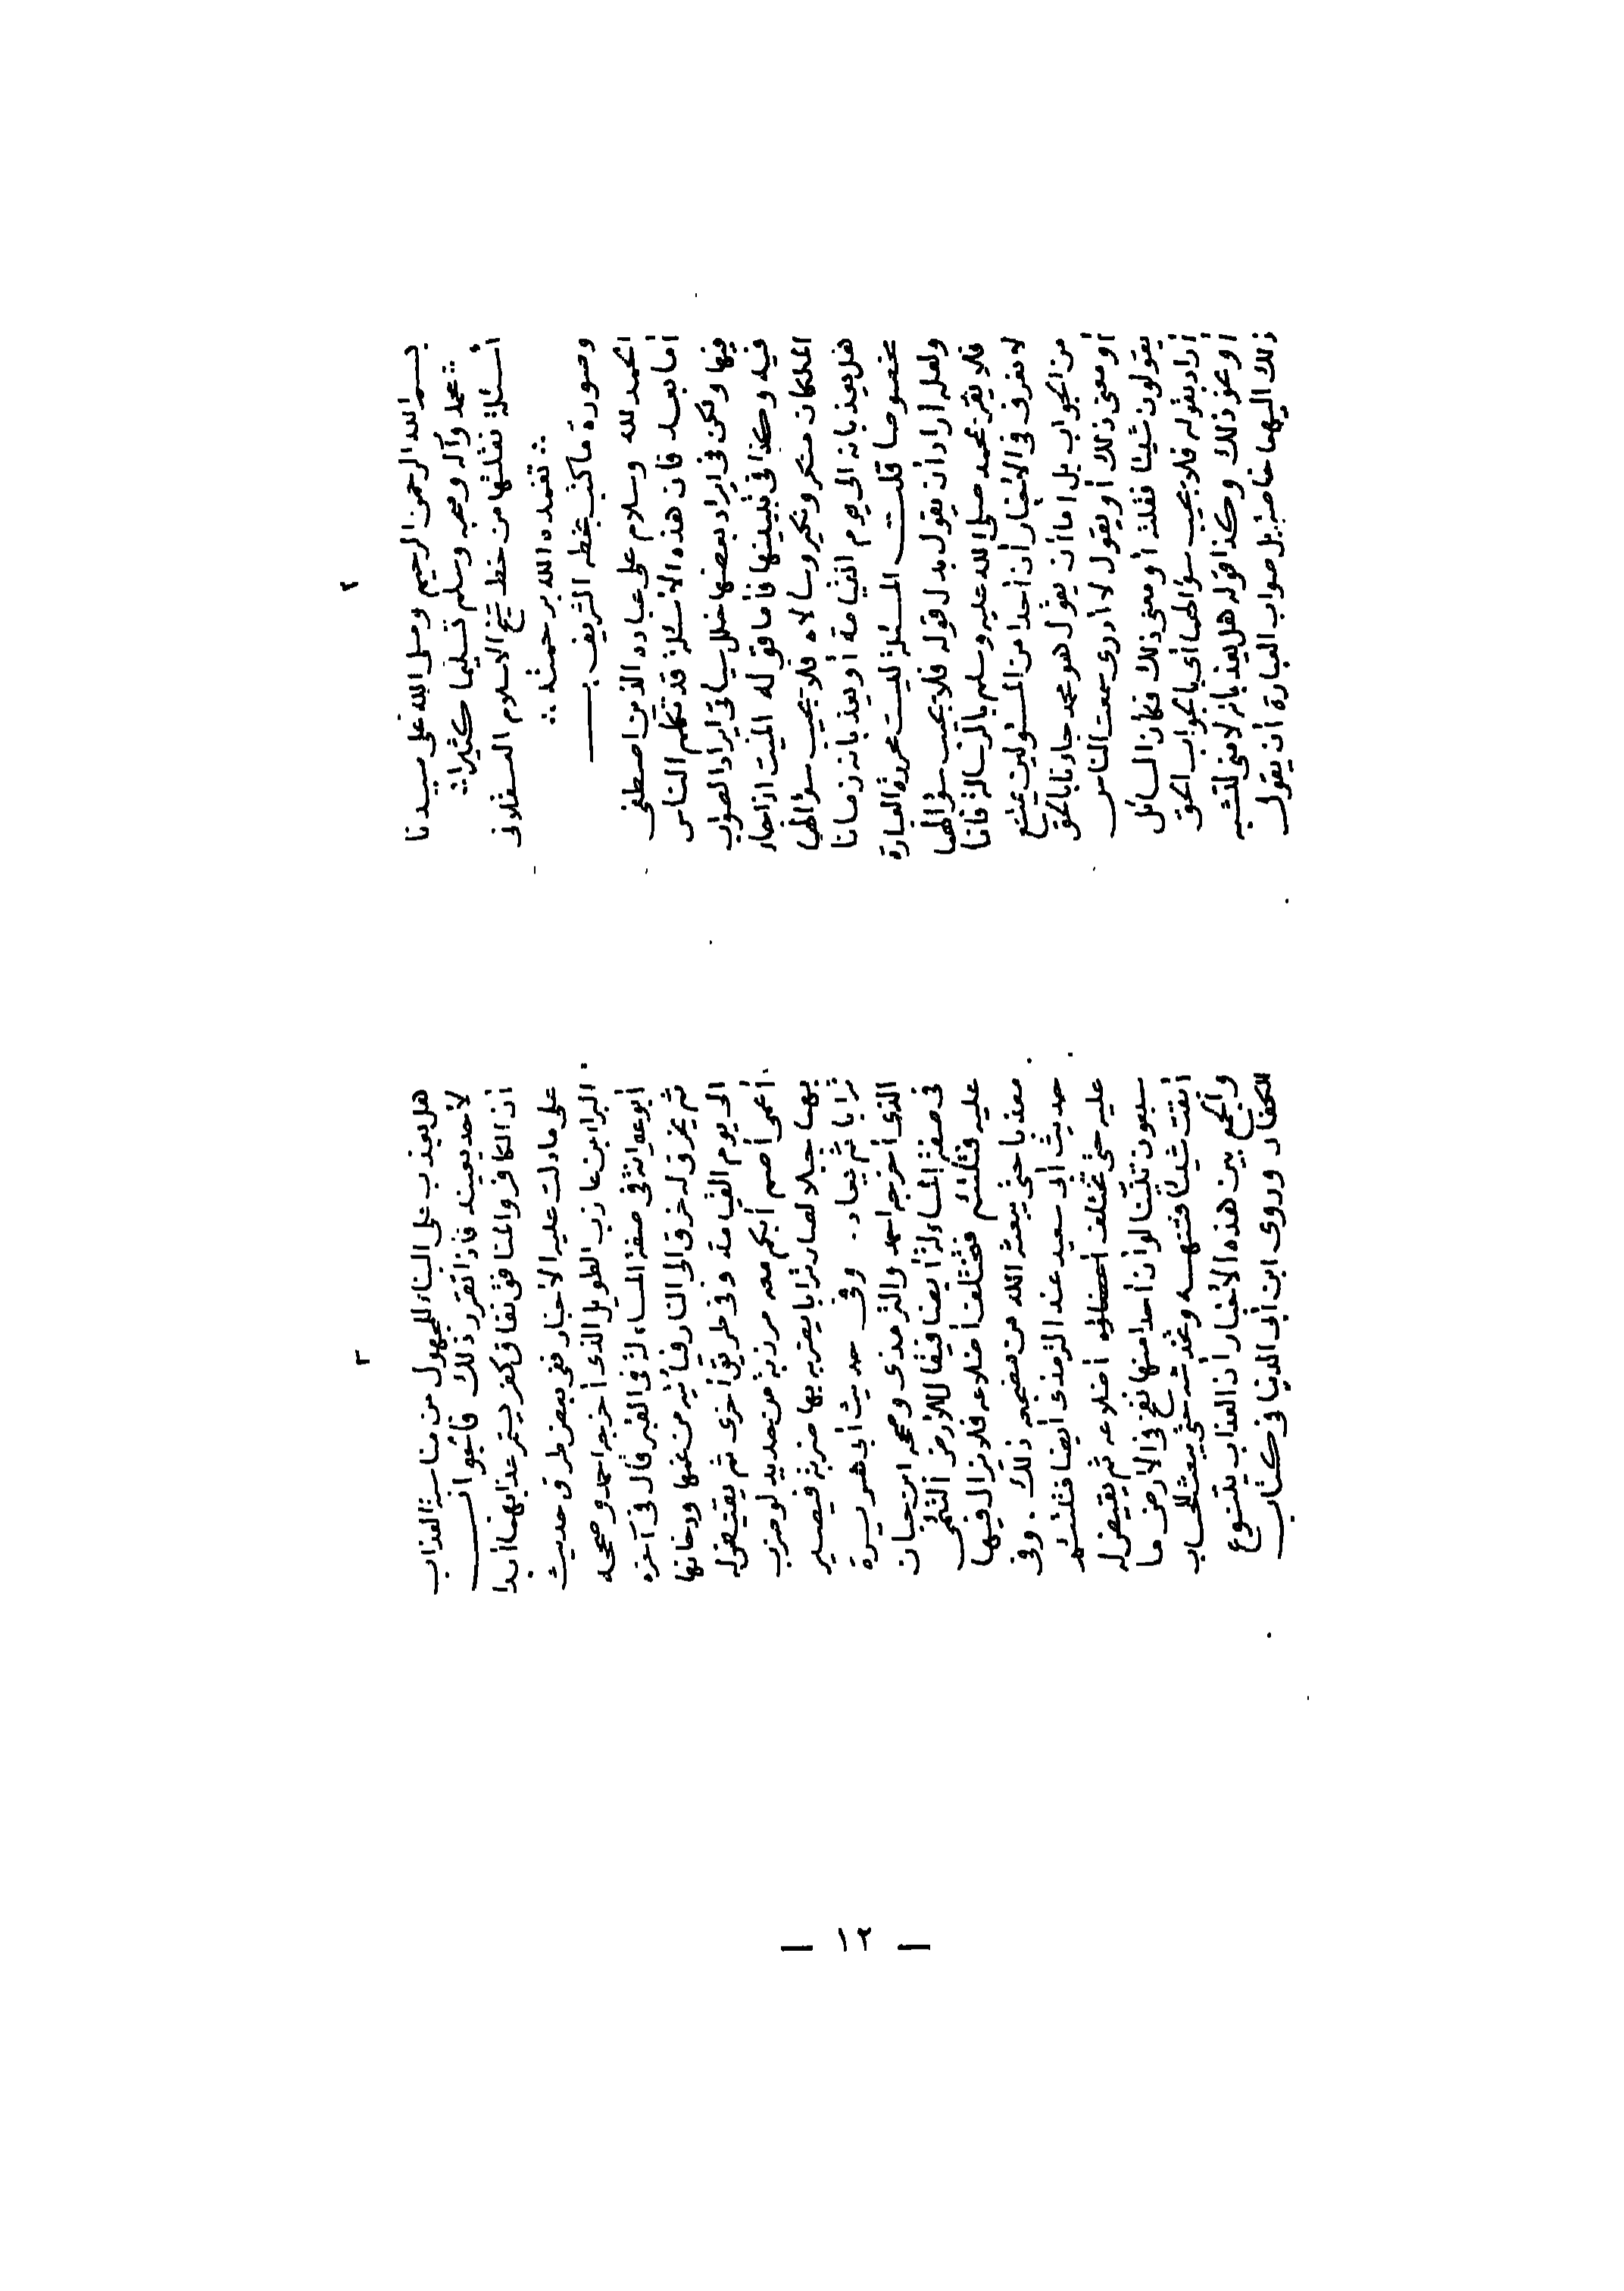 ٢
بسم الله الرحمن الرحيم وصلى الله على سيدنا
محمد وآله وصحبه وسلم تسليما كثيرا
أسئلة نقلتها من خط شيخ الاسلام العسقلانى
تغمده الله برحمته
وصورة ما كتب بخطه الشريف
الحمد لله وسلام على عباده الذين اصطفى
أما بعد فان هذه الأسئلة قد تكلم الناس
فيها ولكن فى ايراد بعضها خلل سيأتى ايراد الصواب
فيه وكذا فى تبيينها فأما قوله الميت اذا جاءه
الملكان منكر ونكير وسألاه فلا يجيب سؤالهما
هل يعذبانه الى يوم القيامة أو يعذبانه زمانا
مخصوصا قلت المسئلة ليست محررة العبارة
ولعله أراد أن يقول بدل قوله فلا يجيب سؤالهما
فلا يقر بمحمد صلى الله عليه وسلم بالرسالة فانا
لا نعرف فى الأخبار أن أحدا من المسئولين يمتنع
من الجواب بل اما أن يقول هو محمد جاءنا بالحق
أو معنى ذلك أو يقول لا أدرى سمعت الناس
يقولون شيئا فقلته أو معنى ذلك فكان السائل
أراد بقوله فلا يجيب سؤالهما أى بالجواب الحق
أو نحو ذلك وكذا قوله هل يعذبانه لا معنى لنسبة
ذلك اليهما خاصة بل صواب العبارة أن يقول
٣
هل يعذب على البناء للمجهول من مناسبة العذاب
لأحد بعينه فاذا تقرر ذلك فالجواب
أن الكافر والمنافق نفاق كفر يستمر عذابهما أبدا
على ما دلت عليه الأخبار ففى بعض طرق حديث
البراء بن عازب الطويل الذى أخرجه احمد وصححه
أبو عوانة فى صفة المساءلة فى القبر قال فى آخره
ثم يخرق له خرق الى النار فيأتيه من غمها ودخانها
الى يوم القيامة وفى طريق أخرى ثم يقيض له
أعمى أصم أبكم معه مرزبة من حديد لو ضرب
بها جبلا لصار ترابا يضربه بها ضربة فيصير
ترابا ثم يعاد . وفى حديث أبى هريرة
الذى أخرجه احمد والترمذى وصححه ابن حبان
فى صفة المساءلة أيضا فيقال للأرض التئمى
عليه فتلتئم فتختلف أضلاعه فلا يزال فيها
معذبا حتى يبعثه الله من مضجعه ذلك . وفى
حديث أبى سعيد عند الترمذى أيضا فتلتئم
عليه حتى تختلف أضلاعه ثم يقيض له
سبعون تنّينا لو أن أحدا منها نفخ فى الأرض ما
أنبتت شيئا فتنهسه وتخدشه حتى يبعث للحساب
والجمع بين هذه الأخبار أن العذاب يتنوع
للكفار وروى ابن أبى الدنيا فى كتاب
— ١٢ —